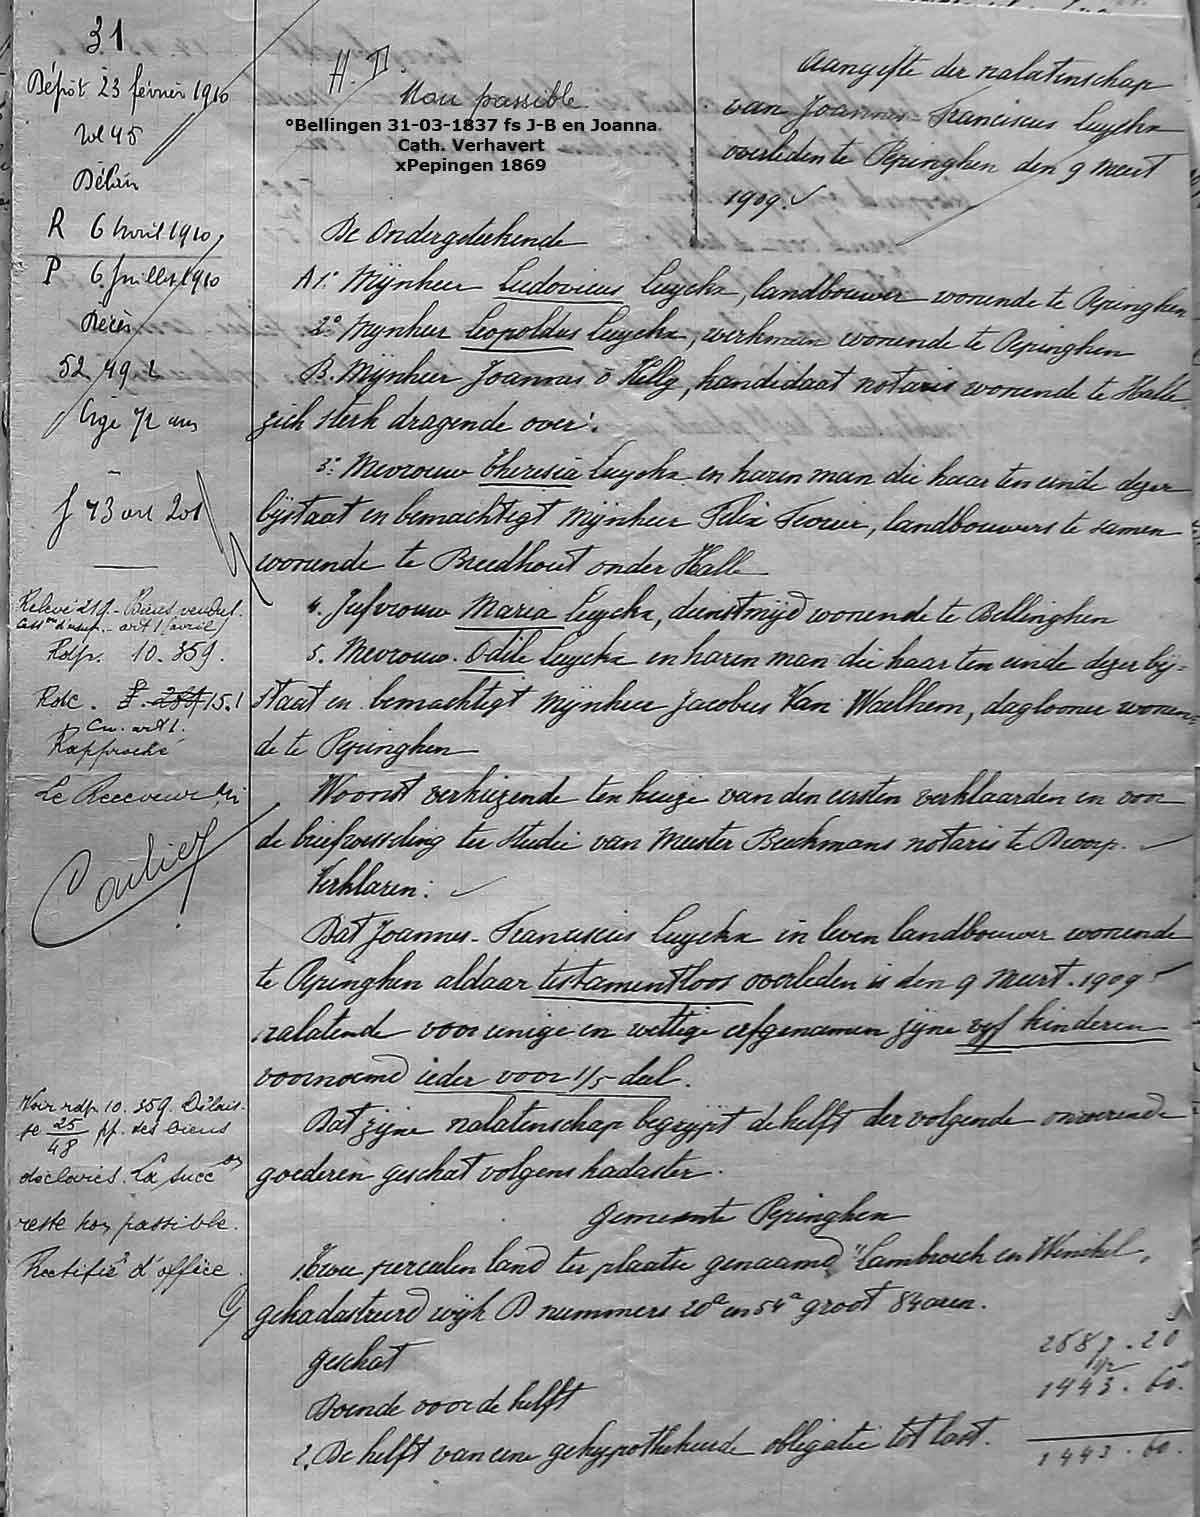 31
Dépôt 23 février 1910
vol 45
Délai
R 6 Avril 1910
P 6 Juillet 1910
Décès
52 49 2
Agé 72 ans
f 43 art 201
Relevé 219 - Biens vendus.
art 1 (avril)
Rdp. 10.359.
Rdc. 15.1
Cn. art 1.
Rapproché
Le Receveur
Voir rdp 10.359. Délais.
se 25/48 pf. des biens
déclarés. La succon
reste non passible.
Rectifié d'office.
H. D.
Non passible
°Bellingen 31-03-1837 fs J-B en Joanna
Cath. Verhavert
xPepingen 1869
Aangifte der nalatenschap
van Joannes-Franciscus Luyckx
overleden te Pepinghen den 9 meert
1909.
De Ondergeteekende
A 1° Mijnheer Ludovicus Luyckx, landbouwer wonende te Pepinghen
2° Mijnheer Leopoldus Luyckx, werkman wonende te Pepinghen
B. Mijnheer Joannes ô Kelly, kandidaat notaris wonende te Halle
zich sterk dragende over:
3° Mevrouw Theresia Luyckx en haren man die haar ten einde dezer
bijstaat en bemachtigt Mijnheer Felix, landbouwers te samen
wonende te Breedhout onder Halle
4. Jufvrouw Maria Luyckx, dienstmijd wonende te Bellinghen
5. Mevrouw Odile Luyckx en haren man die haar ten einde dezer bij-
staat en bemachtigt Mijnheer Jacobus Van Waelhem, daglooner wonen-
de te Pepinghen
Woonst verkiezende ten huize van den eersten verklaarden en voor
de briefwisseling ter studie van Meester Beekmans notaris te Dworp.
Verklaren:
Dat Joannes-Franciscus Luyckx in leven landbouwer wonende
te Pepinghen aldaar testamentloos overleden is den 9 Meert 1909
nalatende voor eenige en wettige erfgenamen zijne vijf kinderen
voornoemd ieder voor 1/5 deel.
Dat zijne nalatenschap begrijpt de helft der volgende onroerende
goederen geschat volgens kadaster.
Gemeente Pepinghen
1. Twee perceelen land ter plaatse genaamd "Lambroeck en Winckel"
gekadastreerd wijk D nummers 20a en 54a groot 84 aren.
geschat 2887.20
1/2
Doende voor de helft 1443.60.
2. De helft van eene gehypothekeerde obligatie tot last. 1443.60.